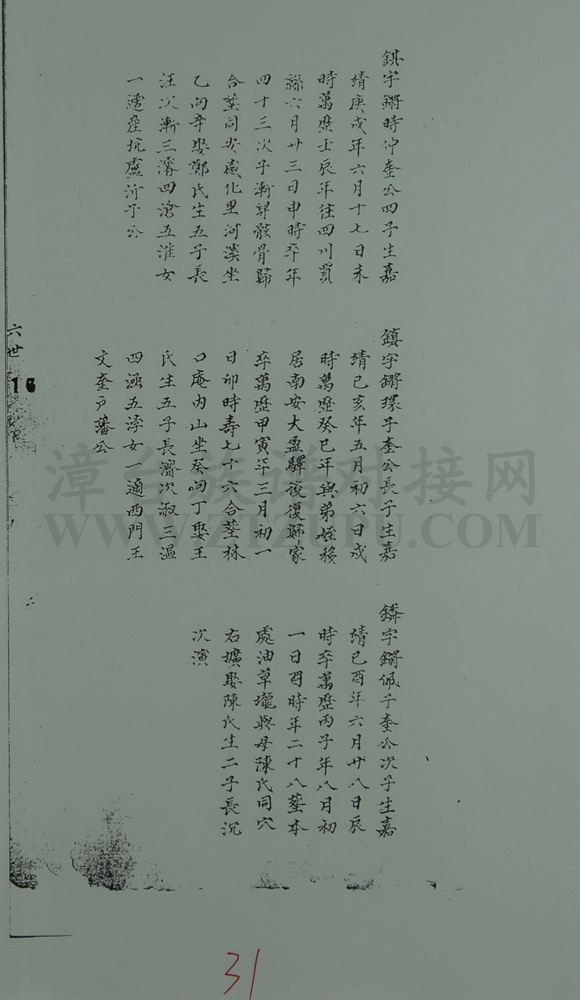 鉷字鏘時仲奎公四子生嘉
靖庚戌年六月十七日未
時萬歷壬辰年往四川貿
六月廿三日申時卒年
四十三次子漸骸骨歸
合葬同安感化里河溪坐
乙向辛娶鄭氏生五子長
汪次漸三濬四滄五淮女
一適埕坑盧
鎮字鏘環子奎公長子生嘉
靖己亥年五月初六日戌
時萬歷癸巳年與弟姪移
居南安大盈驛後復歸家
卒萬歷甲寅年三月初一
日卯時壽七十六合塟林
口庵內山坐癸向丁娶王
氏生五子長濟次淑三温
四涵五浮女一適西門王
文奎戶籓公
鏻字鏘佩子奎公次子生嘉
靖己酉年六月廿八日辰
時卒萬歷丙子年八月初
一日酉時年二十八塟本
處油草壠與母陳氏同穴
右壙娶陳氏生二子長沉
次演
六世
16
漳台族谱对接网
WWW.ZTZUPU.COM
31